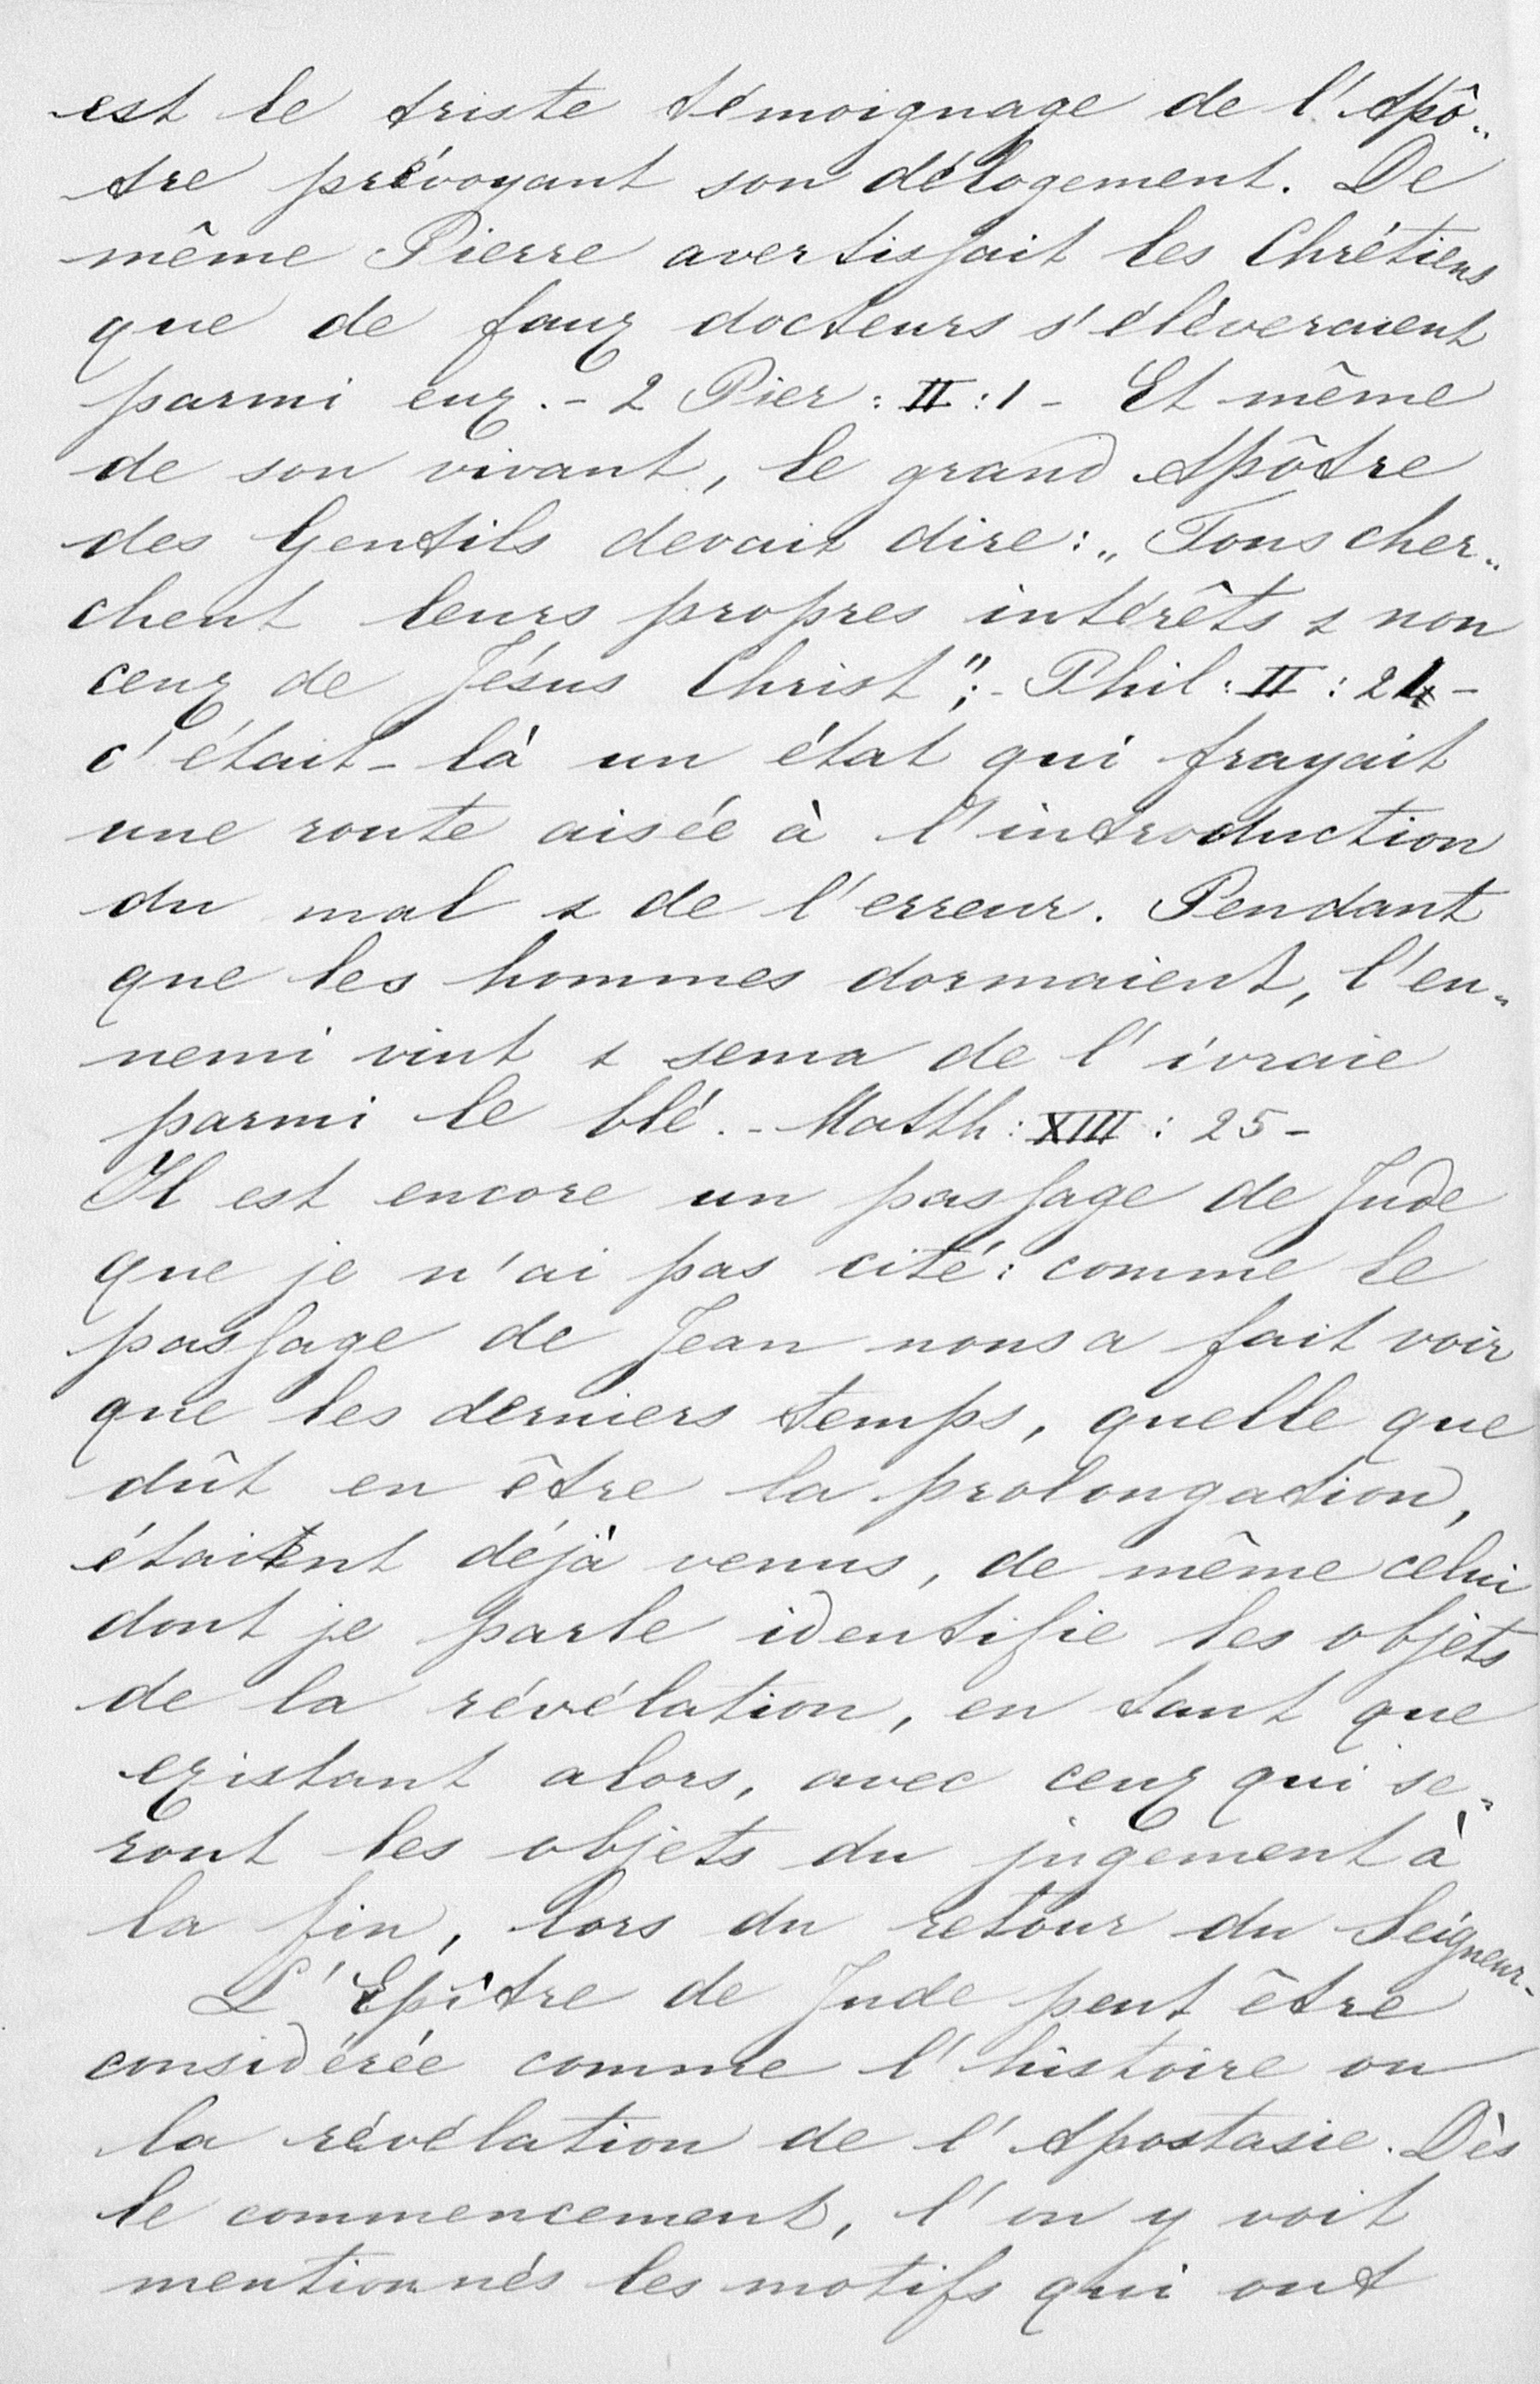 est le triste témoignage de l'Apô„
tre prévoyant son délogement. De
même Pierre avertissait les Chrétiens
que de faux docteurs s'élèveraient
parmi eux. - 2 Pier : II : 1 - Et même
de son vivant, le grand Apôtre
des Gentils devait dire : „ Tous cher„
chent leurs propres intérêts & non
ceux de Jésus Christ "; - Phil : II : 21 -
c'était-là un état qui frayait
une route aisée à l'introduction
du mal & de l'erreur. Pendant
que les hommes dormaient, l'en„
nemi vint & sema de l'ivraie
parmi le blé. - Matth : XIII : 25 -
Il est encore un passage de Jude
que je n'ai pas cité : comme le
passage de Jean nous a fait voir
que les derniers temps, quelle que
dût en être la prolongation,
étaient déjà venus, de même celui
dont je parle identifie les objets
de la révélation, en tant que
existant alors, avec ceux qui se„
ront les objets du jugement à
la fin, lors du retour du Seigneur.
L'Epître de Jude peut être
considérée comme l'histoire ou
la révélation de l'Apostasie. Dès
le commencement, l'on y voit
mentionnés les motifs qui ont